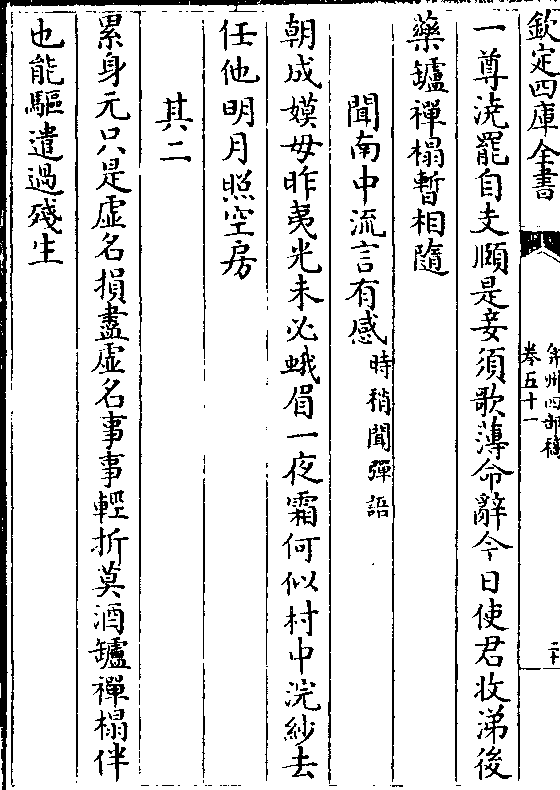 欽定四庫全書
弇州四部稿
卷五十一
一尊澆罷自支頤是妾須歌薄命辭今日使君收涕後
藥罏禪榻暫相隨
聞南中流言有感時稍聞彈語
朝成嫫母昨夷光未必蛾眉一夜霜何似村中浣紗去
任他明月照空房
其二
累身元只是虛名損盡虛名事事輕折莫酒罏禪榻伴
也能驅遣過殘生